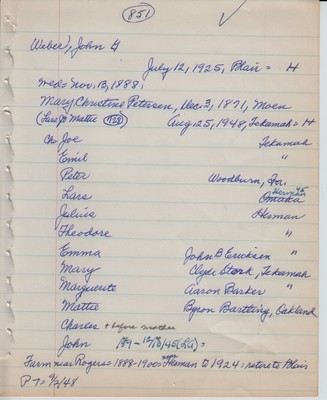 851
Weber, John G
July 12, 1925, Blair = H
Wed = Nov. 13, 1888,
Mary Christine Petersen, Dec. 3, 1871, Moen
(Lars Jo Mattie 1128) Aug 25, 1948, Tekamah = H
Ch Joe Tekamah
Emil "
Peter Woodburn, Ia.
Lars Omaha Herman 45
Julius Herman
Theodore "
Emma John B Ericksen "
Mary Clyde Stork, Tekamah
Marguerite Aaron Barker "
Mattie Byron Bartling, Oakland
Charles + before mother
John
Farm near Rogers = 1888-1900 = near Herman to 1924: retire to Blair
P T = 9/2/48